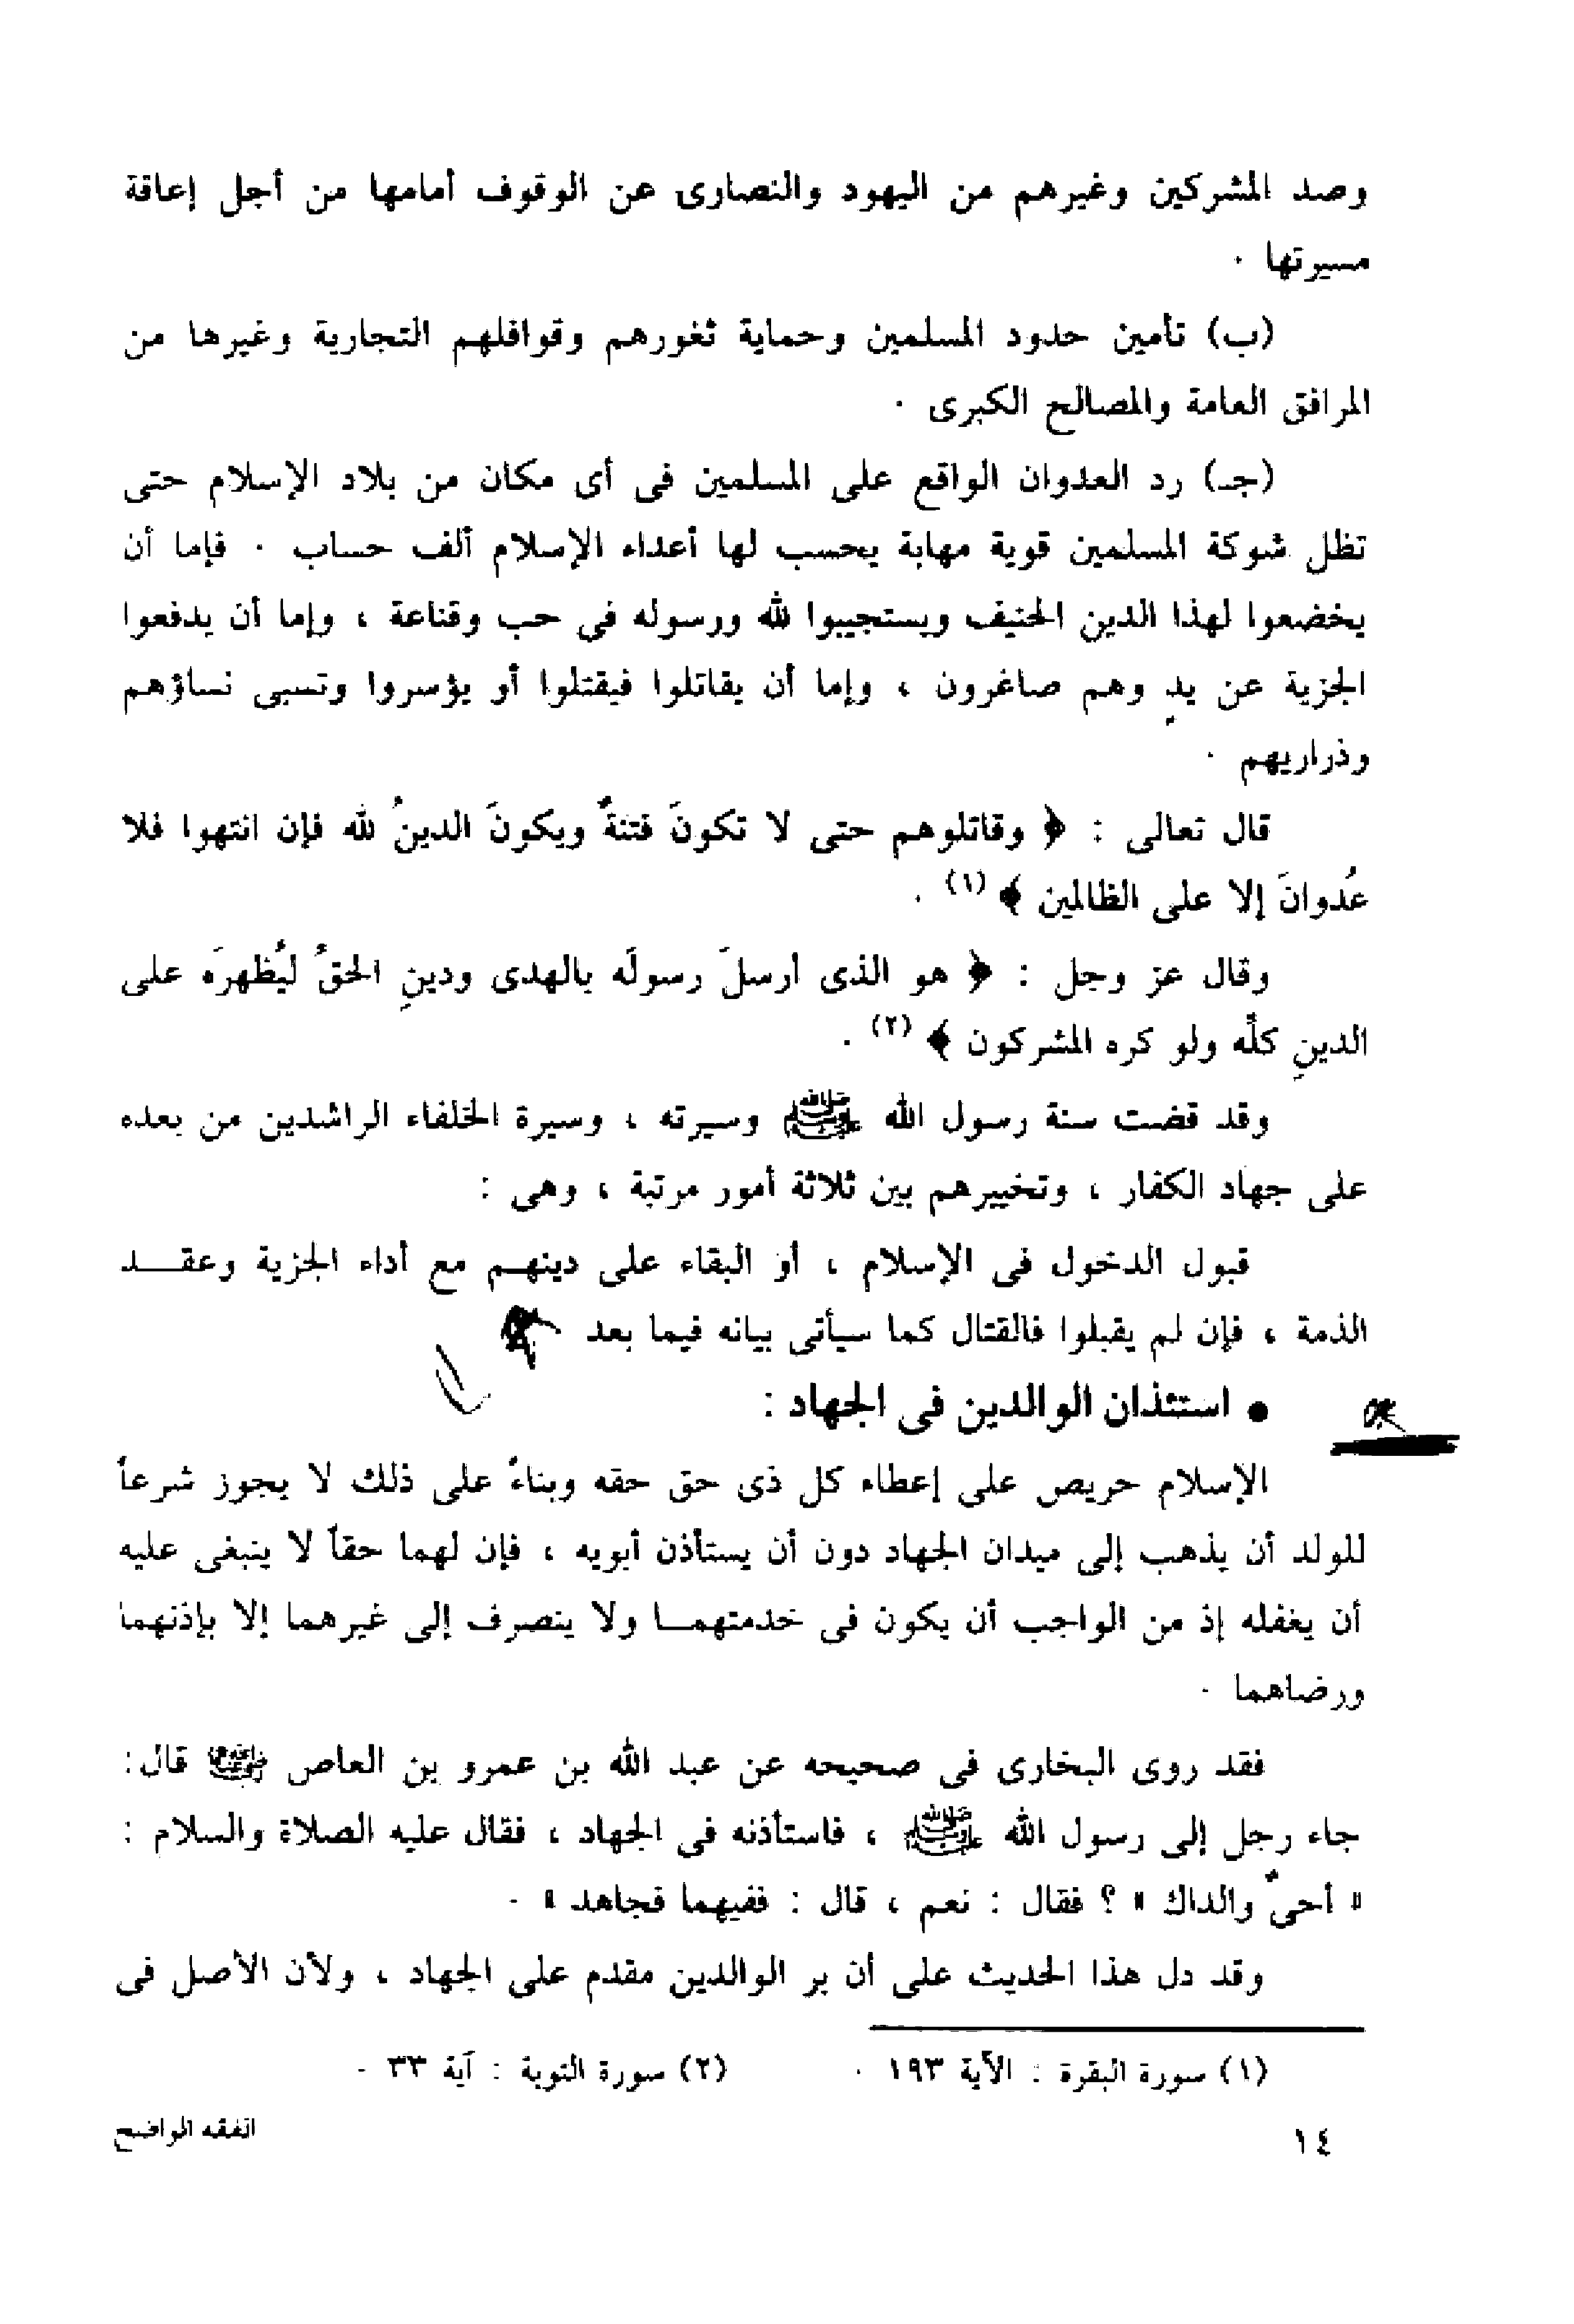 وصد المشركين وغيرهم من اليهود والنصارى عن الوقوف أمامها من أجل إعاقة
مسيرتها .
(ب) تأمين حدود المسلمين وحماية ثغورهم وقوافلهم التجارية وغيرها من
المرافق العامة والمصالح الكبرى .
(جـ) رد العدوان الواقع على المسلمين فى أى مكان من بلاد الإسلام حتى
تظل شوكة المسلمين قوية مهابة يحسب لها أعداء الإسلام ألف حساب . فإما أن
يخضعوا لهذا الدين الحنيف ويستجيبوا لله ورسوله فى حب وقناعة ، وإما أن يدفعوا
الجزية عن يدٍ وهم صاغرون ، وإما أن يقاتلوا فيقتلوا أو يؤسروا وتسبى نساؤهم
وذراريهم .
قال تعالى : ﴿ وقاتلوهم حتى لا تكونَ فتنةٌ ويكونَ الدينُ لله فإن انتهوا فلا
عُدوانَ إلا على الظالمين ﴾ (١) .
وقال عز وجل : ﴿ هو الذى أرسلَ رسولَه بالهدى ودينِ الحقُ ليُظهرَه على
الدينِ كلِّه ولو كره المشركون ﴾ (٢) .
وقد قضت سنة رسول الله ﷺ وسيرته ، وسيرة الخلفاء الراشدين من بعده
على جهاد الكفار ، وتخييرهم بين ثلاثة أمور مرتبة ، وهى :
قبول الدخول فى الإسلام ، أو البقاء على دينهـم مع أداء الجزية وعقـــد
الذمة ، فإن لم يقبلوا فالقتال كما سيأتى بيانه فيما بعد
● استئذان الوالدين فى الجهاد :
الإسلام حريص على إعطاء كل ذى حق حقه وبناءً على ذلك لا يجوز شرعاً
للولد أن يذهب إلى ميدان الجهاد دون أن يستأذن أبويه ، فإن لهما حقاً لا ينبغى عليه
أن يغفله إذ من الواجب أن يكون فى خدمتهمـا ولا ينصرف إلى غيرهما إلا بإذنهما
ورضاهما .
فقد روى البخارى فى صحيحه عن عبد الله بن عمرو بن العاص رضي الله عنهما قال:
جاء رجل إلى رسول الله ﷺ ، فاستأذنه فى الجهاد ، فقال عليه الصلاة والسلام :
« أحىٌّ والداك » ؟ فقال : نعم ، قال : ففيهما فجاهد » .
وقد دل هذا الحديث على أن بر الوالدين مقدم على الجهاد ، ولأن الأصل فى
(١) سورة البقرة : الآية ١٩٣ . (٢) سورة التوبة : آية ٣٣ .
١٤ الفقه الواضح